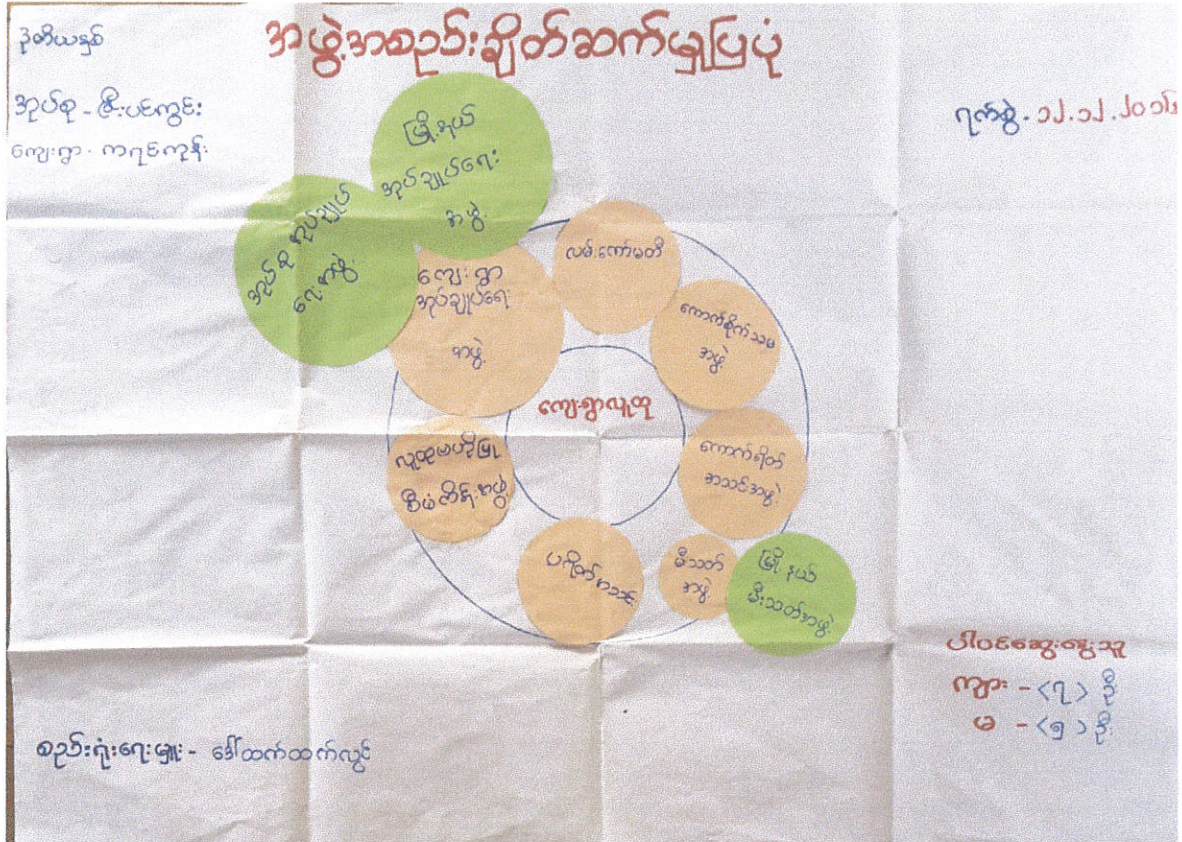 ဒုတိယနှစ်
အဖွဲ့အစည်းချိတ်ဆက်မှုပြပုံ
အုပ်စု - ဇီးပင်ကွင်း
ကျေးရွာ - ကရင်ကုန်း
ရက်စွဲ - ၁၂.၁၂.၂၀၁၆
မြို့နယ်
အုပ်ချုပ်ရေး
အဖွဲ့
အုပ်စု အုပ်ချုပ်
ရေးအဖွဲ့
ကျေးရွာ
အုပ်ချုပ်ရေး
အဖွဲ့
လမ်းကော်မတီ
ကောက်စိုက်သမ
အဖွဲ့
ကျေးရွာလူထု
လူထုဗဟိုပြု
စီမံကိန်းအဖွဲ့
ကောက်ရိတ်
အသင်းအဖွဲ့
ပရိတ်အသင်း
မီးသတ်
အဖွဲ့
မြို့နယ်
မီးသတ်အဖွဲ့
ပါဝင်ဆွေးနွေးသူ
ကျား - <၇> ဦး
မ - <၅> ဦး
စည်းရုံးရေးမှူး - ဒေါ်ထက်ထက်လွင်